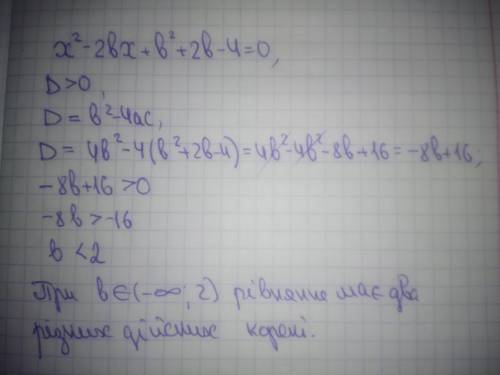 x²-2вx+в²+2в-4=0,
D>0,
D=в²-4ac,
D=4в²-4(в²+2в-4)=4в²-4в²-8в+16=-8в+16;
-8в+16>0
-8в>-16
в<2
При в∈(-∞; 2) рівняння має два
різних дійсних корені.